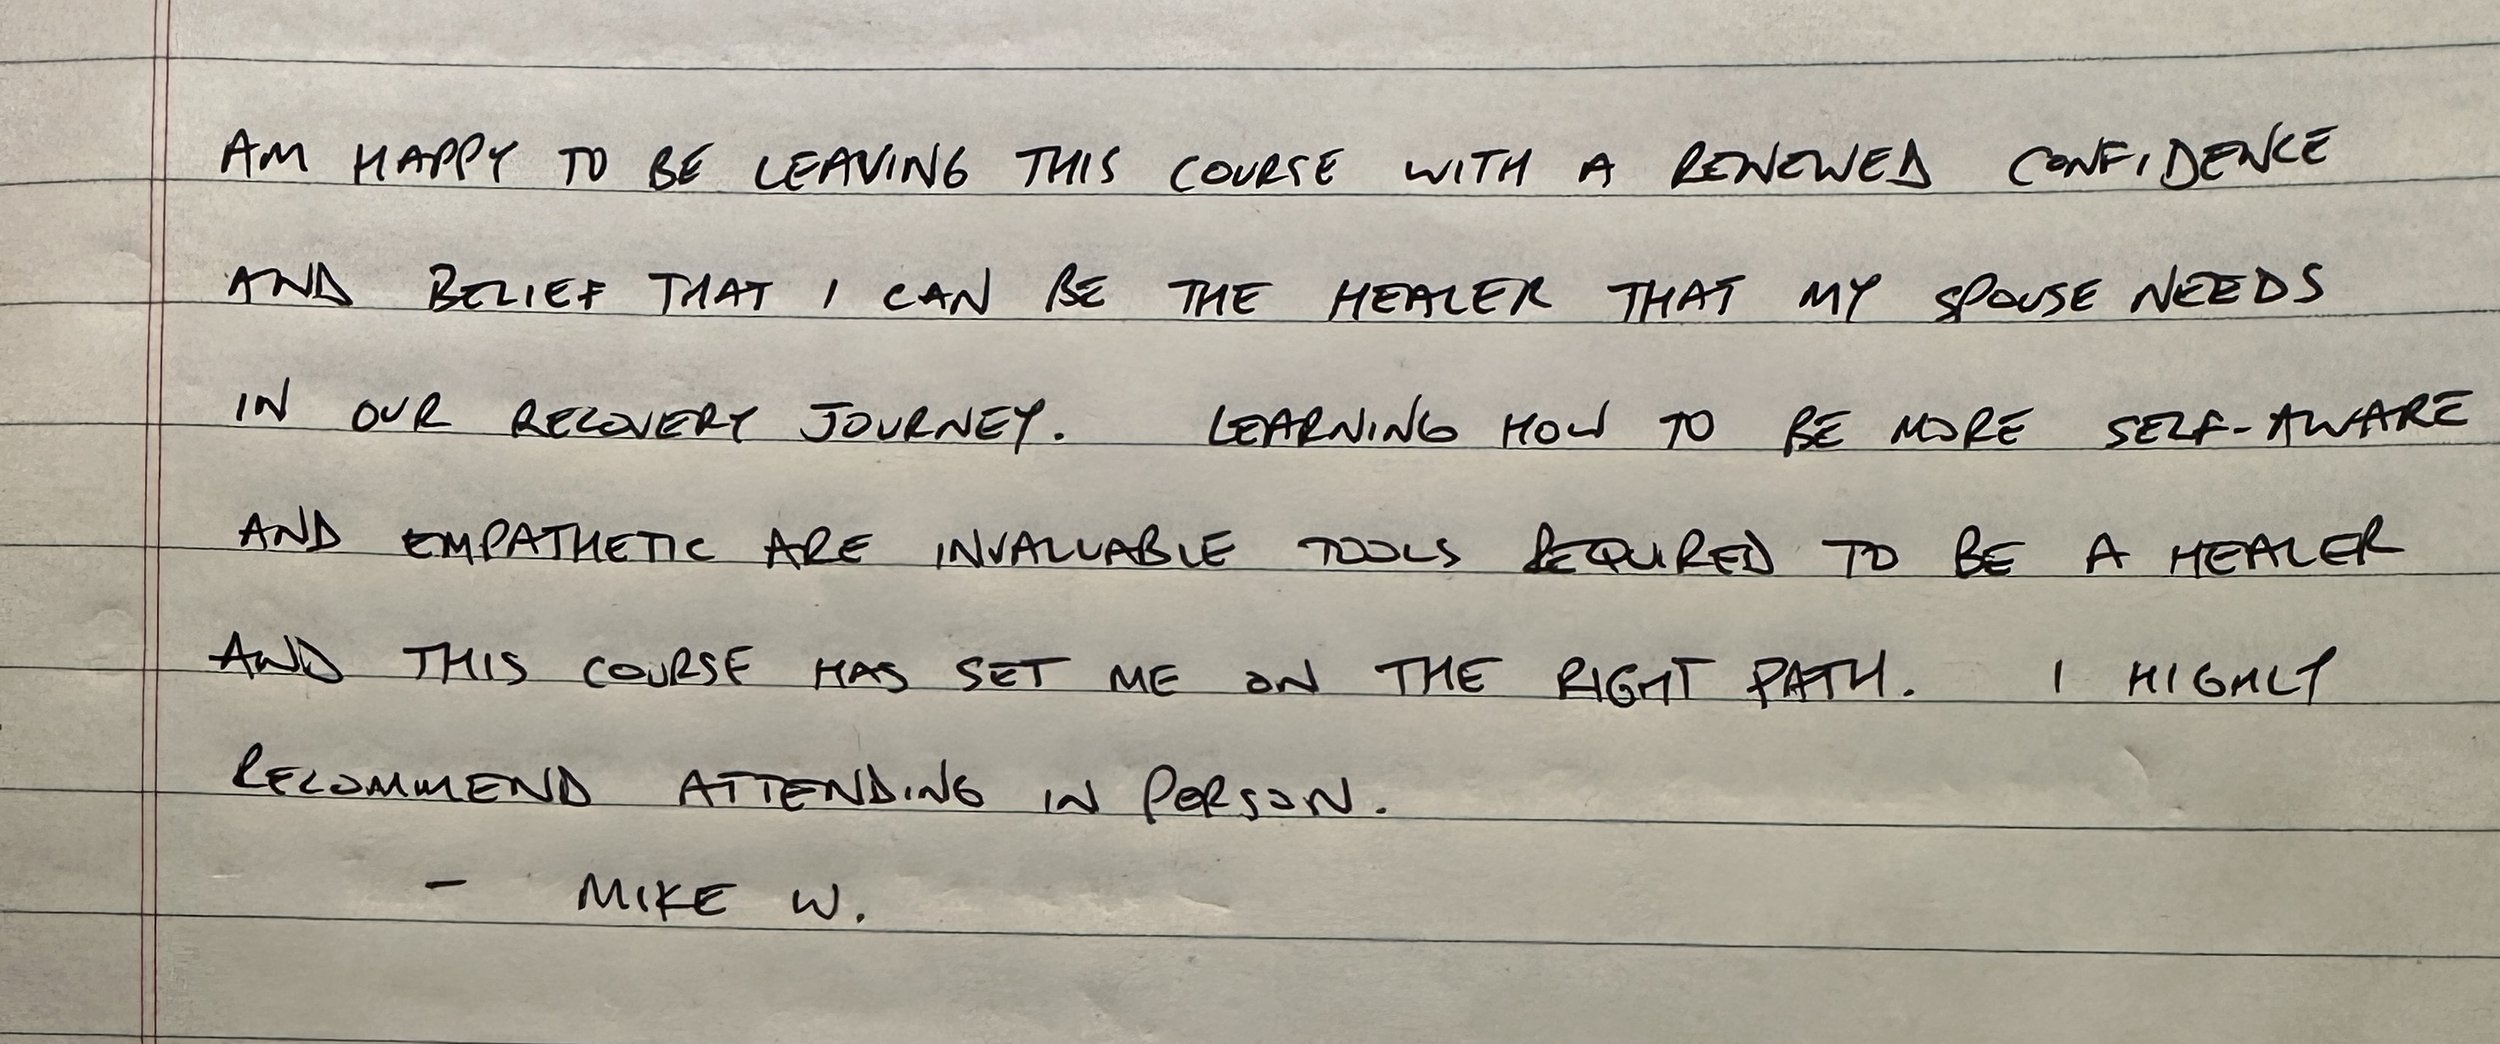 AM HAPPY TO BE LEAVING THIS COURSE WITH A RENEWED CONFIDENCE
AND BELIEF THAT I CAN BE THE HEALER THAT MY SPOUSE NEEDS
IN OUR RECOVERY JOURNEY. LEARNING HOW TO BE MORE SELF-AWARE
AND EMPATHETIC ARE INVALUABLE TOOLS REQUIRED TO BE A HEALER
AND THIS COURSE HAS SET ME ON THE RIGHT PATH. I HIGHLY
RECOMMEND ATTENDING IN PERSON.
- MIKE W.